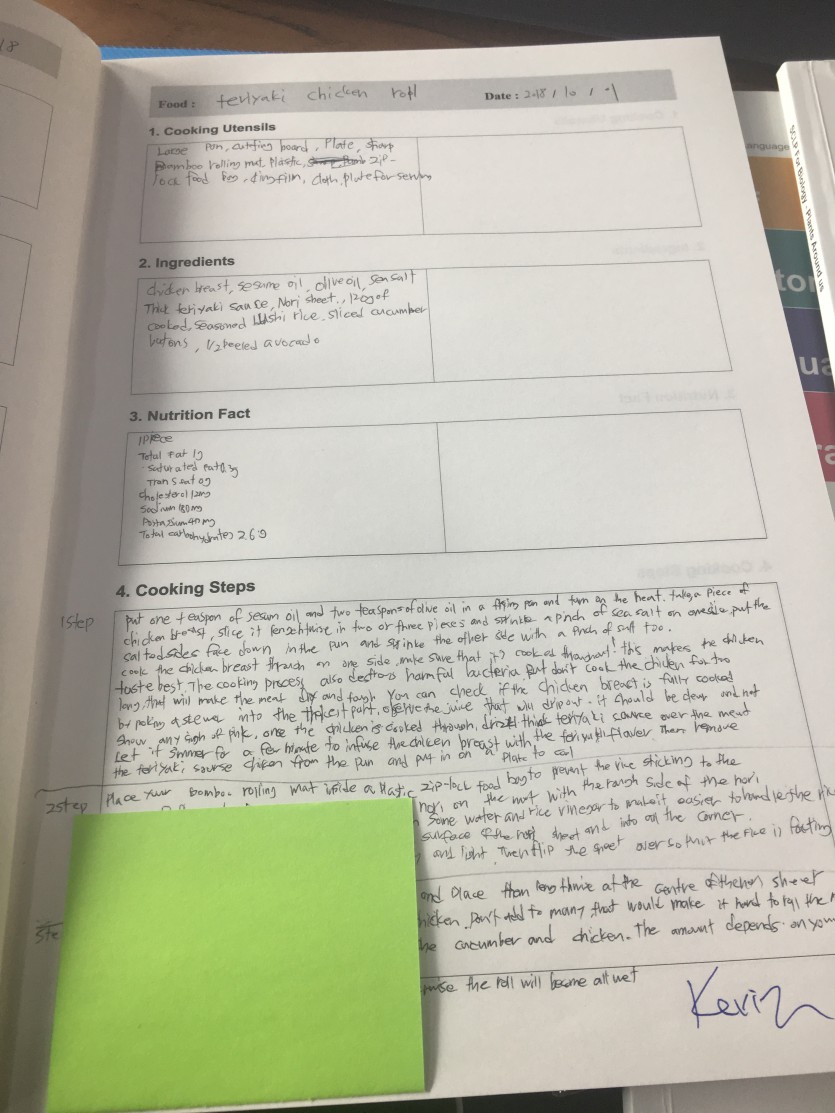 Food : teriyaki chicken roll
Date : 2018 / 10 /
1. Cooking Utensils
Large pan, cutting board, Plate, sharp
Bomboo rolling mat, Plastic, zip-
lock food bag, cling film, cloth, plate for serving
2. Ingredients
chicken breast, sesame oil, olive oil, sea salt
Thick teriyaki sauce, Nori sheet, 120g of
cooked, seasoned sushi rice, sliced cucumber
batons, 1/2 peeled avocado
3. Nutrition Fact
1 piece
Total Fat 1g
· saturated Fat 0.3g
Trans Fat 0g
cholesterol 12mg
Sodium 180mg
Potassium 40mg
Total carbohydrates 2.6g
4. Cooking Steps
1step
put one teaspon of sesam oil and two teaspons of olive oil in a frying pan and turn on the heat. take a piece of
chicken breast, slice it lengthwise in two or three pieces and sprinkle a pinch of sea salt on one side. put the
salted sides face down in the pan and sprinke the other side with a pinch of salt too.
cook the chicken breast through on one side, make sure that it's cooked throughout! this makes the chicken
taste best. The cooking process also destroys harmful bacteria. But don't cook the chicken for too
long, that will make the meat dry and tough. You can check if the chicken breast is fully cooked
by poking a skewer into the thickest part, observe the juice that will drip out. it should be clear and not
show any sigh of pink, once the chicken is cooked through, drizzl think teriyaki saurce over the meat
Let it simmer for a few minute to infuse the chicken breast with the teriyaki flavor. Then remove
the teriyaki sourse chiken from the pan and put in on a plate to cool
2step
Place your bomboo rolling mat inside a plastic zip-lock food bag to prevent the rice sticking to the
nori on the mat with the rough side of the nori
some water and rice vinegar to make it easier to handle the rice
surface of the nori sheet and into all the corner.
and light. Then flip the sheet over so that the rice is facing
and place them lengthwise at the centre of the nori sheet
chicken. Don't add to many that would make it hard to roll the
the cucumber and chicken. The amount depends on you
the roll will become all wet
Kevin
Language
CLIL For Biology - Plants Around us